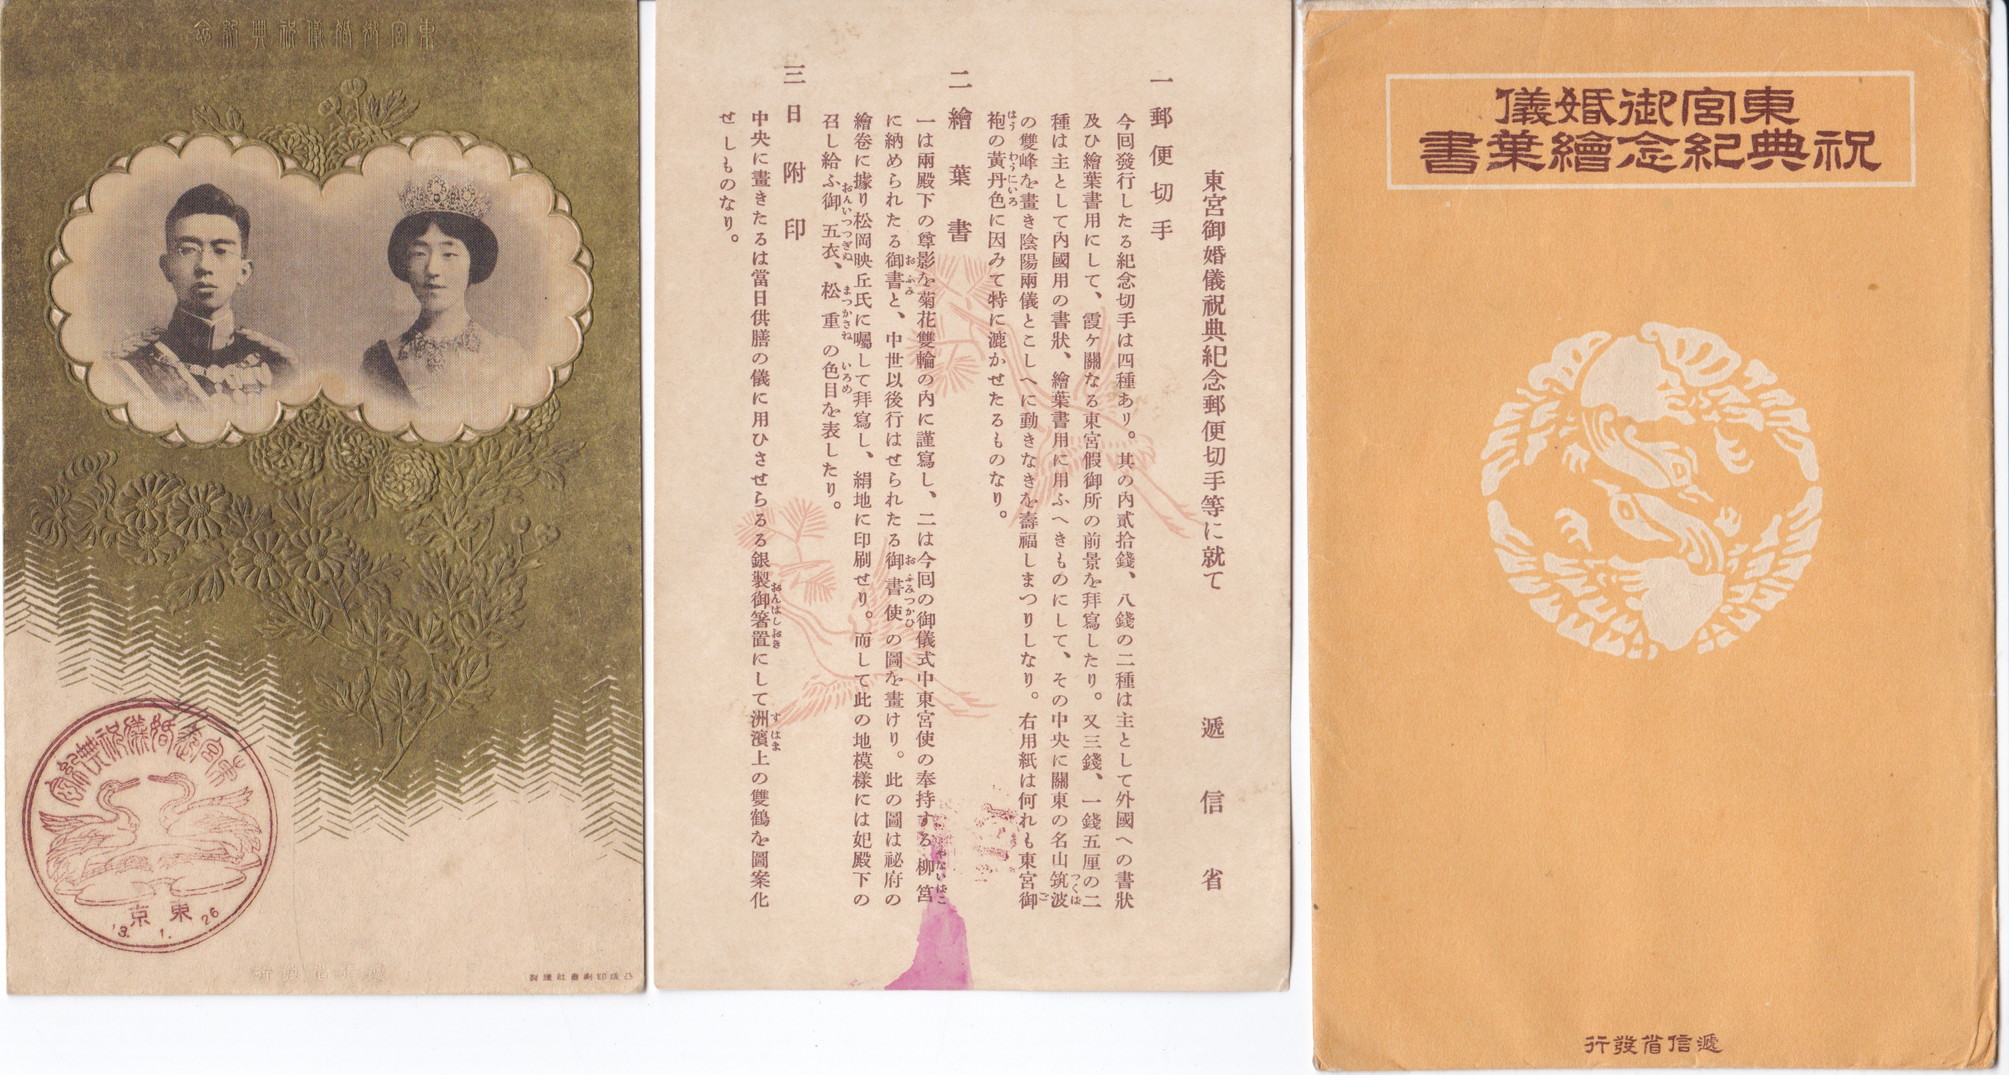 東宮御婚儀祝典紀念
東宮御婚儀祝典紀念
東京
13. 1. 26
逓信省發行
凸版印刷株式會社謹製
東宮御婚儀祝典紀念郵便切手等に就て
遞信省
一 郵便切手
今回發行したる紀念切手は四種あり。其の內貳拾錢、八錢の二種は主として外國への書狀
及ひ繪葉書用にして、霞ケ關なる東宮假御所の前景を拜寫したり。又三錢、一錢五厘の二
種は主として內國用の書狀、繪葉書用に用ふへきものにして、その中央に關東の名山筑波
の雙峰を畫き陰陽兩儀とこしへに動きなきを壽福しまつりしなり。右用紙は何れも東宮御
袍の黃丹色に因みて特に漉かせたるものなり。
二 繪葉書
一は兩殿下の尊影を菊花雙輪の內に謹寫し、二は今回の御儀式中東宮使の奉持する柳筥
に納められたる御書と、中世以後行はせられたる御書使の圖を畫けり。此の圖は祕府の
繪卷に據り松岡映丘氏に囑して拜寫し、絹地に印刷せり。而して此の地模樣には妃殿下の
召し給ふ御五衣、松重の色目を表したり。
三 日附印
中央に畫きたるは當日供膳の儀に用ひさせらるる銀製御箸置にして洲濱上の雙鶴を圖案化
せしものなり。
東宮御婚儀
祝典紀念繪葉書
遞信省發行